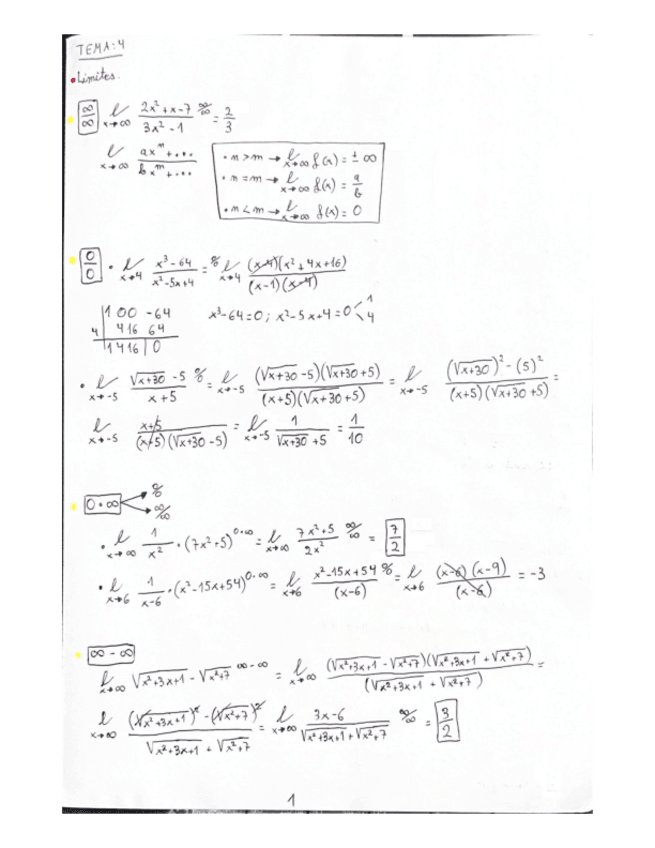 TEMA: 4
• Límites.
∞/∞ l x→∞ (2x²+x-7)/(3x²-1) ∞/∞ = 2/3
l x→∞ (axⁿ+...)/(bxᵐ+...)
• n > m → l x→∞ f(x) = ±∞
• n = m → l x→∞ f(x) = a/b
• n < m → l x→∞ f(x) = 0
0/0 • l x→4 (x³-64)/(x²-5x+4) = 0/0 l x→4 (x-4)(x²+4x+16)/(x-1)(x-4)
1 0 0 -64 x³-64=0; x²-5x+4=0 1 4
4 4 16 64
1 4 16 0
• l x→-5 (√x+30 -5)/(x+5) 0/0 = l x→-5 (√x+30 -5)(√x+30 +5)/(x+5)(√x+30 +5) = l x→-5 ((√x+30)² - (5)²)/(x+5)(√x+30 +5) =
l x→-5 (x+5)/(x+5)(√x+30 -5) = l x→-5 1/(√x+30 +5) = 1/10
0·∞ → 0/0 → ∞/∞
• l x→∞ 1/x² • (7x²+5) 0·∞ = l x→∞ (7x²+5)/(2x²) ∞/∞ = 7/2
• l x→6 1/(x-6) • (x²-15x+54) 0·∞ = l x→6 (x²-15x+54)/(x-6) 0/0 = l x→6 (x-6)(x-9)/(x-6) = -3
∞ - ∞
l x→∞ √x²+3x+1 - √x²+7 ∞-∞ = l x→∞ (√x²+3x+1 - √x²+7)(√x²+3x+1 + √x²+7)/(√x²+3x+1 + √x²+7) =
l x→∞ ((√x²+3x+1)² - (√x²+7)²)/(√x²+3x+1 + √x²+7) = l x→∞ (3x-6)/(√x²+3x+1 + √x²+7) ∞/∞ = 3/2
1